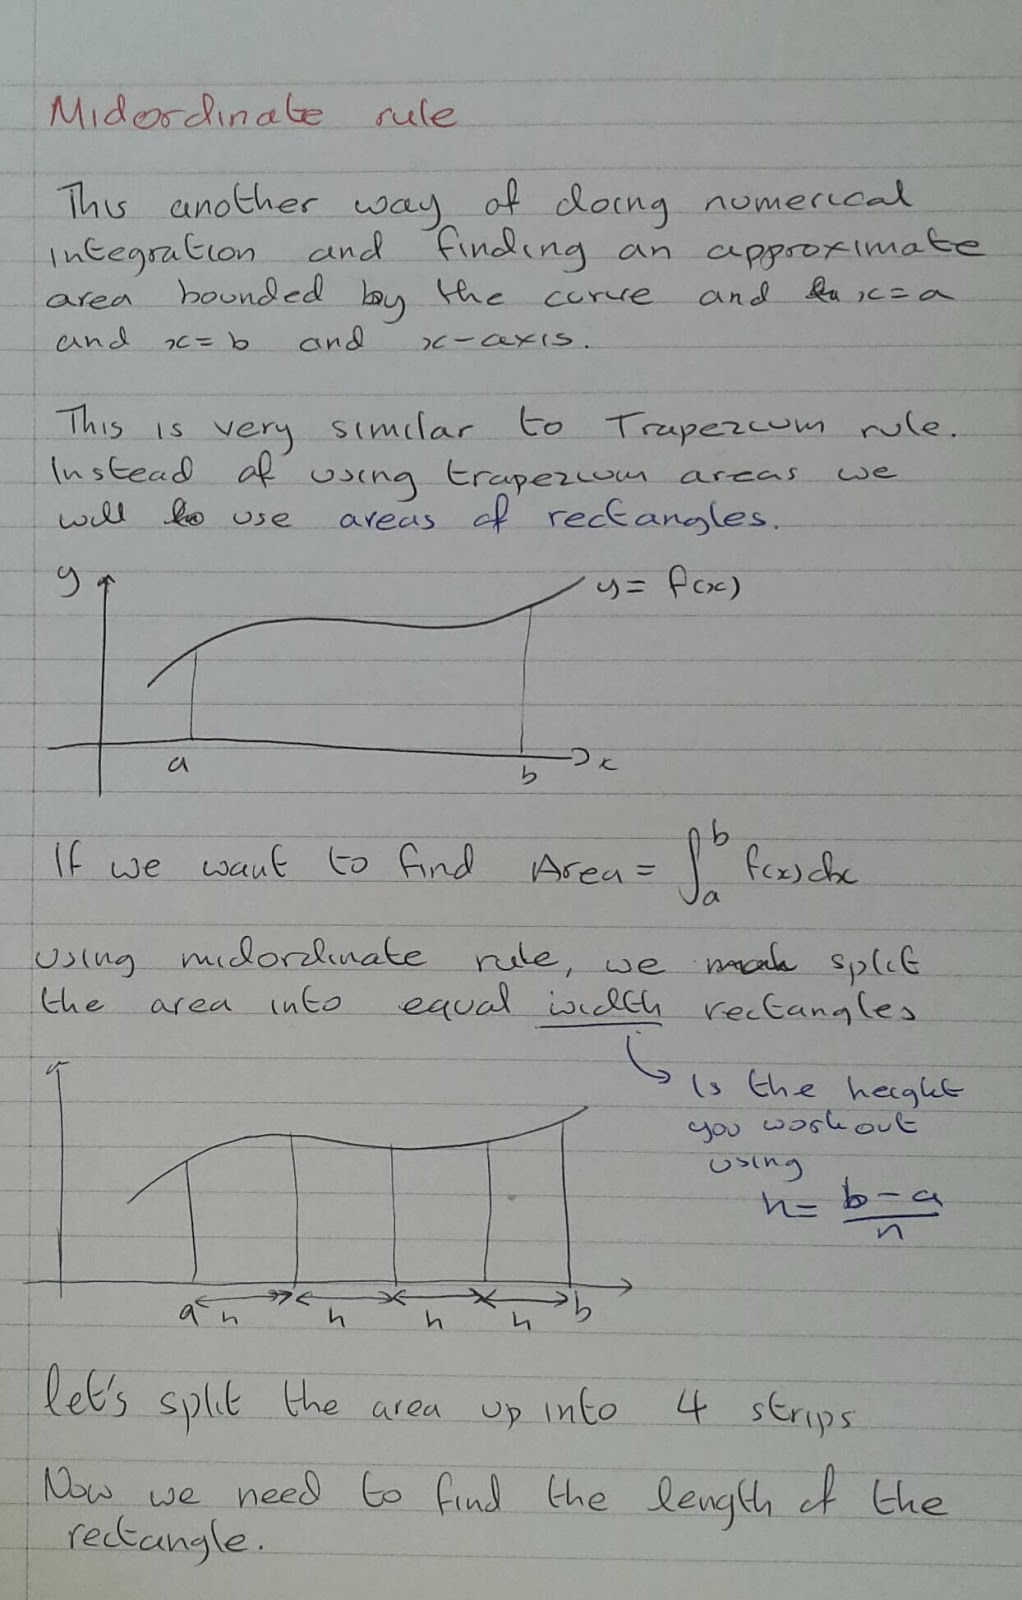 Midordinate rule
This another way of doing numerical
integration and finding an approximate
area bounded by the curve and x=a
and x=b and x-axis.
This is very similar to Trapezium rule.
Instead of using trapezium areas we
will use areas of rectangles.
y
y= f(x)
a
b
x
If we want to find Area = ∫ₐᵇ f(x)dx
using midordinate rule, we split
the area into equal width rectangles
Is the height
you workout
using
h= b-a
n
a h h h h b
let's split the area up into 4 strips
Now we need to find the length of the
rectangle.